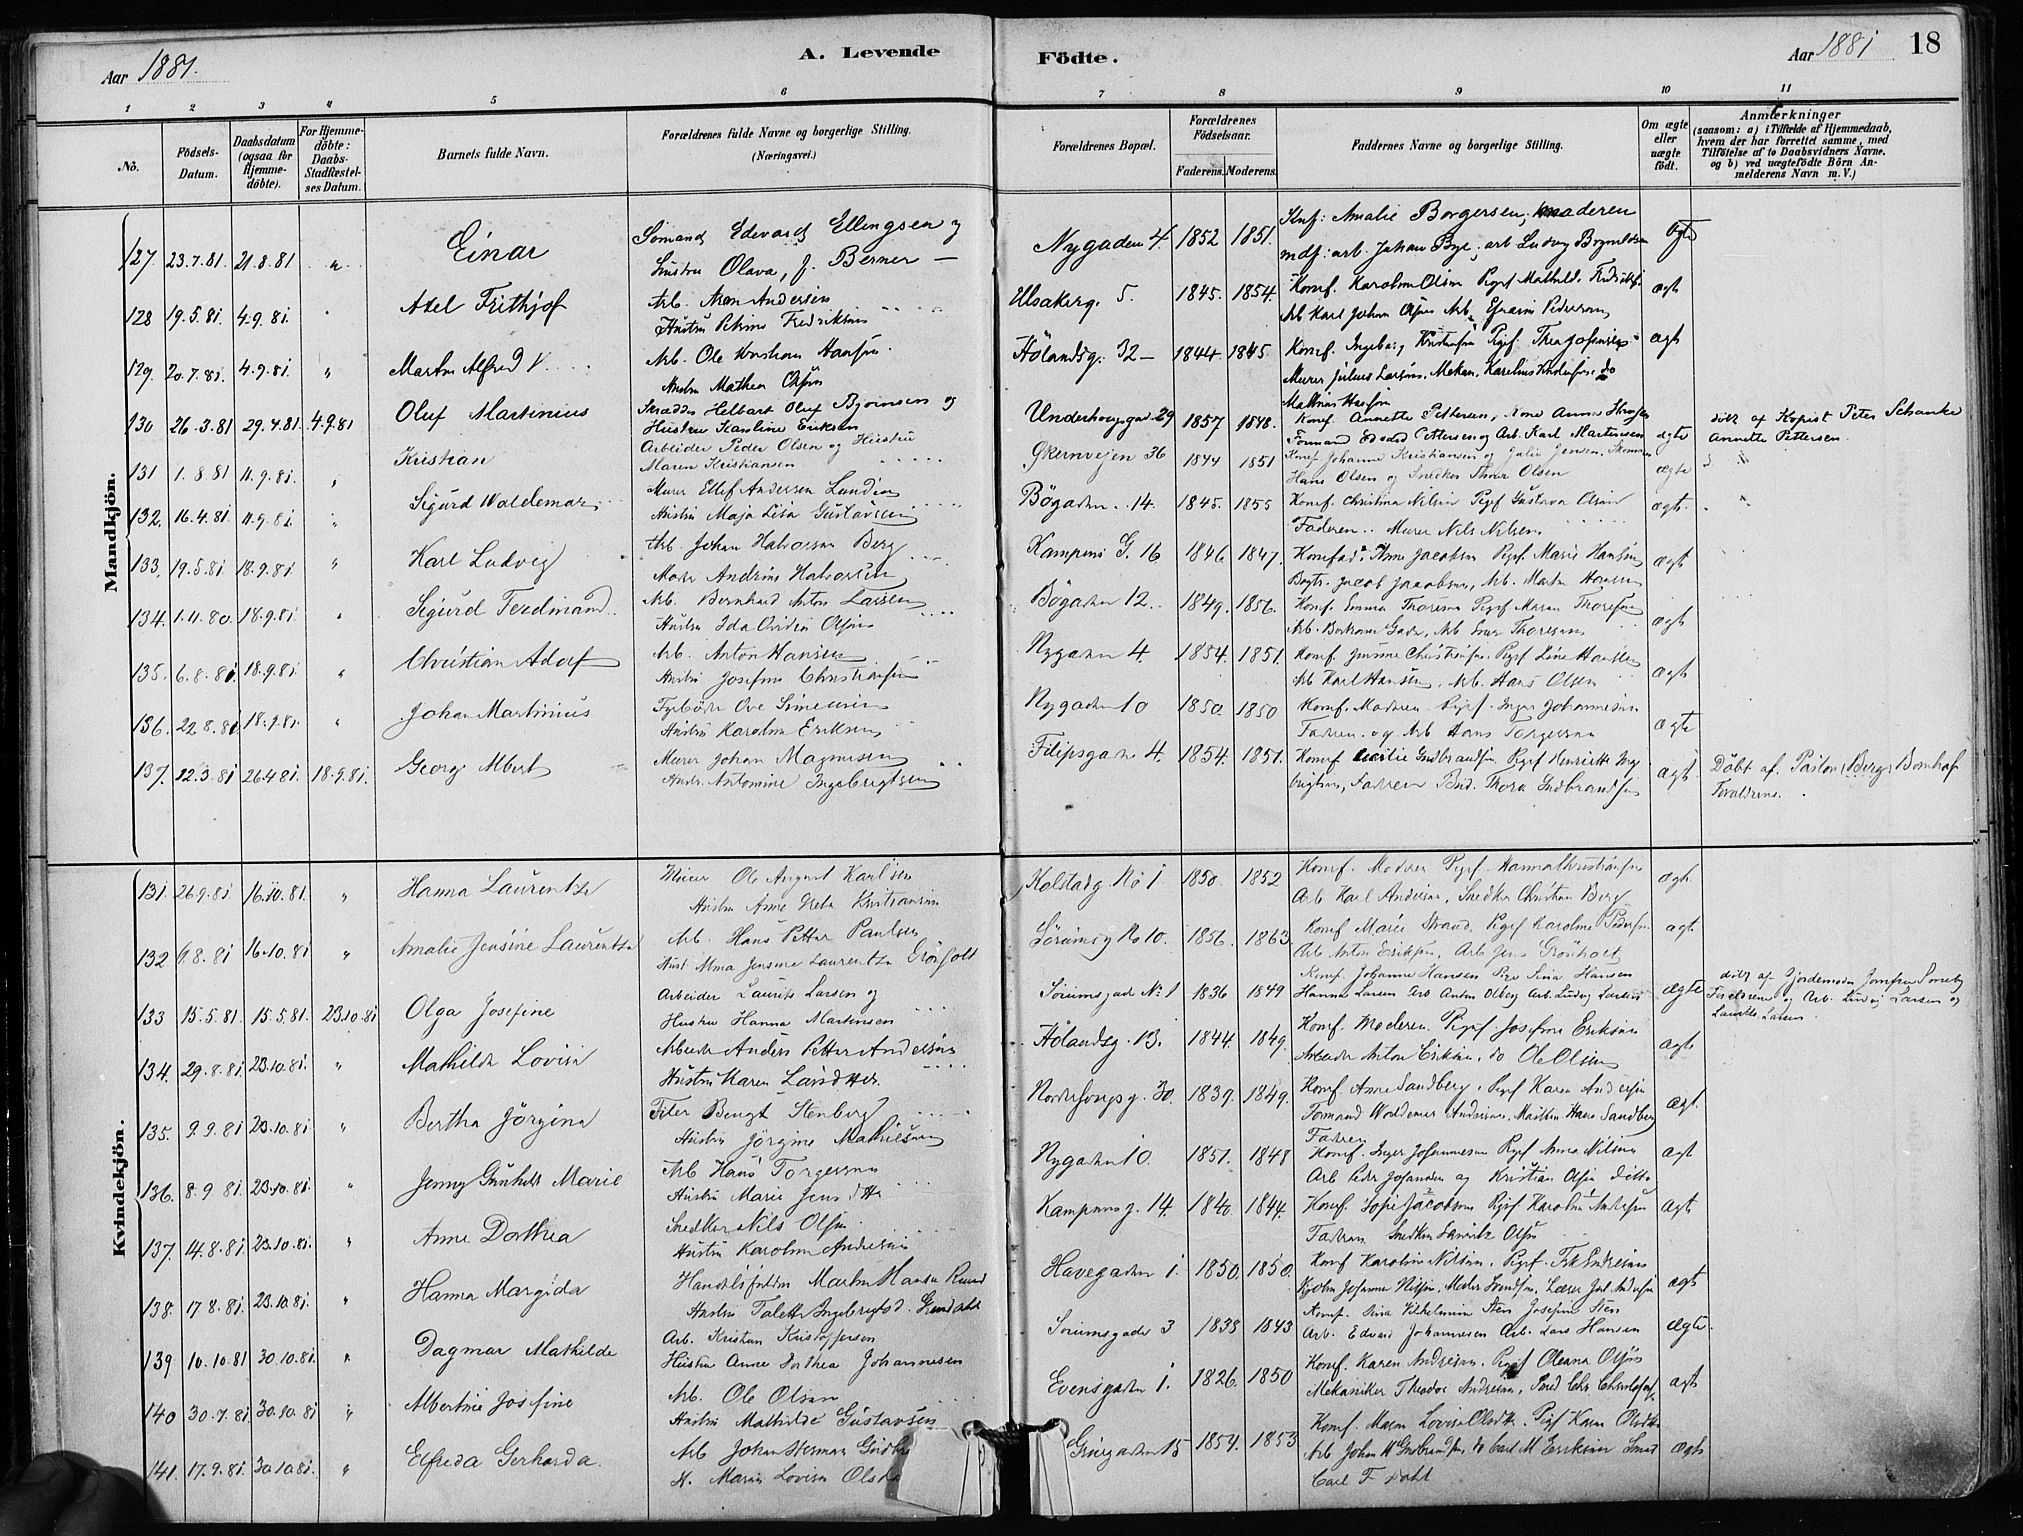 Aar 1881.
A. Levende Födte.
Aar 1881
18
1 2 3 4 5 6 7 8 9 10 11
No.
Födsels-Datum.
Daabsdatum (ogsaa for Hjemme-döbte).
For Hjemme-döbte: Daabs-Stadfæstel-ses Datum.
Barnets fulde Navn.
Forældrenes fulde Navne og borgerlige Stilling.
(Næringsvei.)
Forældrenes Bopæl.
Forældrenes Födselsaar.
Faderens. Moderens.
Faddernes Navne og borgerlige Stilling.
Om ægte eller uægte födt.
Anmærkninger
(saasom: a) i Tilfælde af Hjemmedaab,
hvem der har forrettet samme, med
Tilföielse af to Daabsvidners Navne,
og b) ved uægtefödte Börn An-
melderens Navn m. V.)
Mandkjön.
127. 23.7.81. 21.8.81 " Einar
Sömand Edevard Ellingsen og
Hustru Olava, f. Berner
Nygaden 4 1852 1851.
Knf: Amalie Borgersen, Moderen
mdf: arb. Johan Bye, arb Ludvig
ægte
128 19.5.81. 4.9.81. Axel Frithjof
Arb. Aron Andersen
Hustru Petrine Fredriksen
Ulsakerg. 5. 1845. 1854.
Konf. Karoline Olsen Pigef Mathilde
Arb Karl Johan Olsen Arb. Pedersen
ægt
129. 20.7.81. 4.9.81. " Martin Alfred V.
Arb. Ole Kristian Hansen
Hustru Mathea Olsen
Hölandsg. 32 1844. 1845.
Konf. Ingeborg Pigef. Thea Johnsen
Murer Julius Larsen, Mekan. Karelius do
Mathias Hansen
ægt
130 26.3.81 29.4.81. 4.9.81 Oluf Martinius
Skrædder Helbart Oluf Bjørnsen og
Hustru Karoline Eriksen
Underhaugsgad. 29 1857 1848.
Konf. Annette Pettersen, Kone Anna
Formand Edvard Pettersen og Arb. Karl Martinsen
ægte
döbt af Kopist Peter Schanke
Annette Pettersen.
131 1.8.81 11.9.81. Kristian
Arbeider Peder Olsen og Hustru
Maren Kristiansen
Økernvejen 36 1844 1851
Konf Johanne Kristiansen og Julie Jensen,
Hans Olsen og Snedker Thor Olsen
ægte
132. 16.4.81. 11.9.81. " Sigurd Waldemar
Murer Ellef Andersen Lundin
Hustru Maja Lisa Gustavsen
Bögaden 14. 1845. 1855
Konf. Christina Nilsen Pigef Gustava Olsen
Faderen Murer Nils Nilsen
ægt.
133. 19.5.81 18.9.81 " Karl Ludvig
Arb. Johan Halvorsen Berg
Andrine Halvorsen
Kampens G. 16 1846. 1847.
Anne Jacobsen Pigef. Marie Hansen
Jacob Jacobsen, Arb. Martin Hansen
ægt
134. 1.11.80. 18.9.81. Sigurd Ferdinand
Arb. Bernhard Anton Larsen
Hustru Ida Olsen
Bögaden 12. 1849. 1856.
Konf. Emma Thoresen Pigef Maren Thoresen
ægt
135. 6.8.81. 18.9.81. " Christian Adolf
Arb. Anton Hansen
Hustru Josefine Christiansen
Nygaden 4. 1854. 1851.
Konf. Jensine Christiansen, Pigef. Line Hansen
Arb Karl Hansen, Arb. Hans Olsen
ægt
136. 22.8.81. 18.9.81. " Johan Martinius
Fyrböder Ove Simensen
Hustru Karoline Eriksen
Nygaden 10 1850. 1850
Konf. Moderen Pigef. Inger Johannesen
Faderen og Arb Hans Torgersen
ægte
137. 12.3.81 26.4.81. 18.9.81. Georg Albert
Murer Johan Magnusen
Hustr. Antomine Ingebrigtsen
Filipsgaden 4. 1854. 1851.
Konf Cecilie Gulbrandsen, Pigef Henriette Inge
brigtsen, Faderen Thora Gulbrandsen
ægt.
Döbt af. Pastor Berg Bomhof
Forældrene.
Kvindekjön.
131. 26.9.81 16.10.81. " Hanna Laurentze
Murer Ole August Karlsen
Hustru Anne Kristiansen
Kalstadg No 1 1850. 1852
Konf. Moderen Pigef. Hanna Kristiansen
Arb Karl Andersen, Snedker Christian Berg
ægt.
132 9.8.81. 16.10.81 " Amalie Jensine Laurentza
Arb. Hans Petter Paulsen
Hust Alma Jensine Laurentza Grönholt
Sörumsg No 10. 1856. 1863.
Konf Marie Strand, Pigef Karoline Pedersen
Arb Anton Eriksen, Arb Jens Grönholt
ægt
133 15.5.81. 15.5.81. 23.10.81 Olga Josefine
Arbeider Laurits Larsen og
Hustru Hanna Martinsen
Sörumsgade No 1 1836 1849
Konf. Johanne Hansen Pige Sina Hansen
Hanna Larsen Arb Anton Olberg Arb. Ludvig Larsen
ægte
döbt af Gjordemoder Jomfru
Forældrene og Arb. Ludvig Larsen og
Laurits Larsen.
134. 29.8.81. 23.10.81. " Mathilde Lovise
Arbeider Anders Petter Andersen
Hustru Karen Larsdtter
Hölandsg. 13. 1844. 1849.
Konf. Moderen. Pigef. Josefine Eriksen
Arbeider Anton Eriksen, do Ole Olsen
ægt
135. 9.9.81 23.10.81 " Bertha Jörgine
Filer Bengt Stenberg
Hustru Jörgine Mathiesen
Nordahougsg. 30. 1839. 1849.
Konf. Anne Sandberg, Pigef Karen Andersen
Formand Waldemar Andersen, Maskin Hans Sandberg
Faderen
ægt.
136. 8.9.81. 23.10.81. " Jenny Gunhild Marie
Arb Hans Torgersen
Hustru Marie Jensdtter
Nygaden 10. 1851. 1848
Konf. Inger Johannesen Pigef Anna Nilsen
Arb Peder Johansen og Kristian Olsen ditto
ægt
137. 14.8.81. 23.10.81. " Anne Dorthea
Snedker Nils Olsen
Hustru Karoline Andersen
Kampensg. 14. 1840. 1844.
Konf. Sofie Jacobsen Pigef Karoline Andersen
Faderen Snedker Henrik Olsen
ægt
138. 17.8.81. 23.10.81. " Hanna Margida
Martin Hansen Rund
Hustru Talette Ingebrigtsd.
Havegaden 1. 1850. 1850.
Konf Karoline Nilsen, Pigef.
Johannes Nilsen,
ægt
139 10.10.81 30.10.81. " Dagmar Mathilde
Arb. Kristian Kristoffersen
Hustru Anne Dorthea Johannesen
Sörumsgaden 3 1838 1843
Konf. Vilhelmine Sten Josefine Sten
Arb. Edvard Johannesen Arb. Lars Hansen
ægte.
140 30.7.81. 30.10.81 " Albertine Josefine
Arb. Ole Olsen
Hustru Mathilde Gustavsen
Evensgaden 1. 1826. 1850
Konf. Karen Andersen, Pigef Oleana Olsen
Mekaniker Theodor Andersen,
ægt
141. 17.9.81. 30.10.81. " Elfreda Gerharda.
Arb Johan Herman
H. Maren Lovise
15 1854. 1853
Konf. Maren Lovise Olsdtter. Pigef Karen Olsdtter
Arb Johan do Carl M Eriksen
Carl F Dahl
ægte